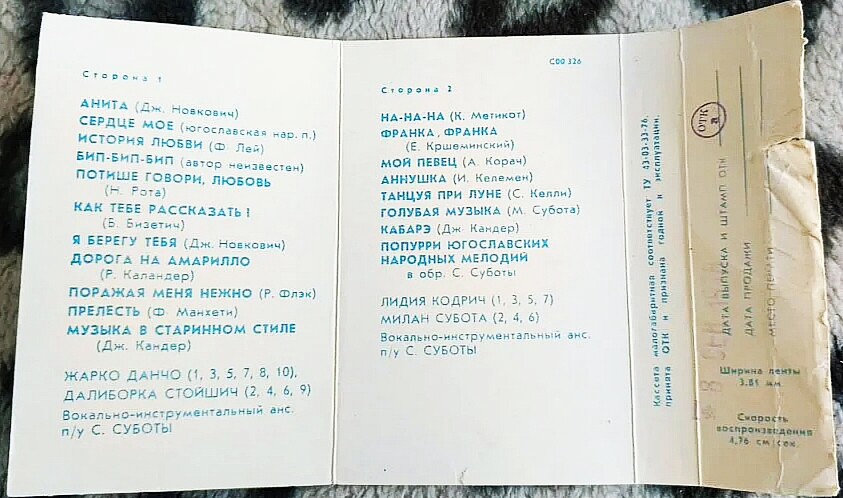 Сторона 1
АНИТА (Дж. Новкович)
СЕРДЦЕ МОЕ (югославская нар. п.)
ИСТОРИЯ ЛЮБВИ (Ф. Лей)
БИП-БИП-БИП (автор неизвестен)
ПОТИШЕ ГОВОРИ, ЛЮБОВЬ
(Н. Рота)
КАК ТЕБЕ РАССКАЗАТЬ!
(Б. Бизетич)
Я БЕРЕГУ ТЕБЯ (Дж. Новкович)
ДОРОГА НА АМАРИЛЛО
(Р. Каландер)
ПОРАЖАЯ МЕНЯ НЕЖНО (Р. Флэк)
ПРЕЛЕСТЬ (Ф. Манхети)
МУЗЫКА В СТАРИННОМ СТИЛЕ
(Дж. Кандер)
ЖАРКО ДАНЧО (1, 3, 5, 7, 8, 10),
ДАЛИБОРКА СТОЙШИЧ (2, 4, 6, 9)
Вокально-инструментальный анс.
п/у С. СУБОТЫ
С00 326
Сторона 2
НА-НА-НА (К. Метикот)
ФРАНКА, ФРАНКА
(Е. Кршеминский)
МОЙ ПЕВЕЦ (А. Корач)
АННУШКА (И. Келемен)
ТАНЦУЯ ПРИ ЛУНЕ (С. Келли)
ГОЛУБАЯ МУЗЫКА (М. Субота)
КАБАРЭ (Дж Кандер)
ПОПУРРИ ЮГОСЛАВСКИХ
НАРОДНЫХ МЕЛОДИЙ
в обр. С. Суботы
ЛИДИЯ КОДРИЧ (1, 3, 5, 7)
МИЛАН СУБОТА (2, 4, 6)
Вокально-инструментальный анс.
п/у С. СУБОТЫ
Кассета малогабаритная соответствует ТУ 43-03-33-76,
принята ОТК и признана годной к эксплуатации.
ДАТА ВЫПУСКА И ШТАМП ОТК
ОТК
ДАТА ПРОДАЖИ
МЕСТО ПЕЧАТИ
Ширина ленты
3,81 мм
Скорость
воспроизведения
4,76 см/сек.